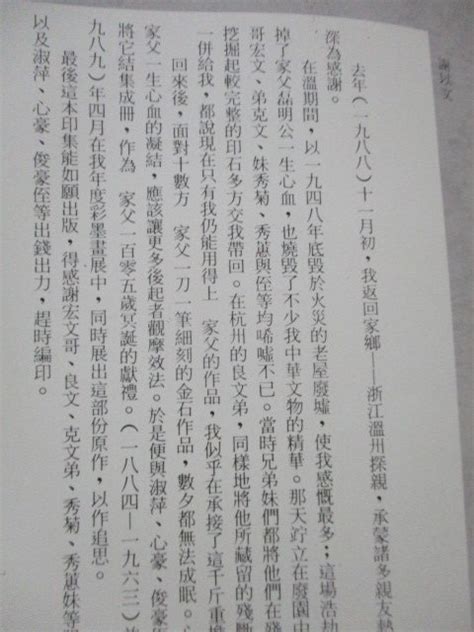 謝以文
去年（一九八八）十一月初，我返回家鄉——浙江溫州探親，承蒙諸多親友熱
深為感謝。
在溫期間，以一九四八年底毀於火災的老屋廢墟，使我感慨最多；這場浩劫
掉了家父磊明公一生心血，也燒毀了不少我中華文物的精華。那天竚立在廢園中
哥宏文、弟克文、妹秀菊、秀蕙與侄等均唏噓不已。當時兄弟妹們都將他們在殘
挖掘起較完整的印石多方交我帶回。在杭州的良文弟，同樣地將他所藏留的殘斷
一併給我，都說現在只有我仍能用得上　家父的作品，我似乎在承接了這千斤重擔
回來後，面對十數方　家父一刀一筆細刻的金石作品，數夕都無法成眠。
家父一生心血的凝結，應該讓更多後起者觀摩效法。於是便與淑萍、心豪、俊豪
將它結集成冊，作為　家父一百零五歲冥誕的獻禮。（一八八四—一九六三）
九八九）年四月在我年度彩墨畫展中，同時展出這部份原作，以作追思。
最後這本印集能如願出版，得感謝宏文哥、良文、克文弟、秀菊、秀蕙妹等
以及淑萍、心豪、俊豪侄等出錢出力，趕時編印。